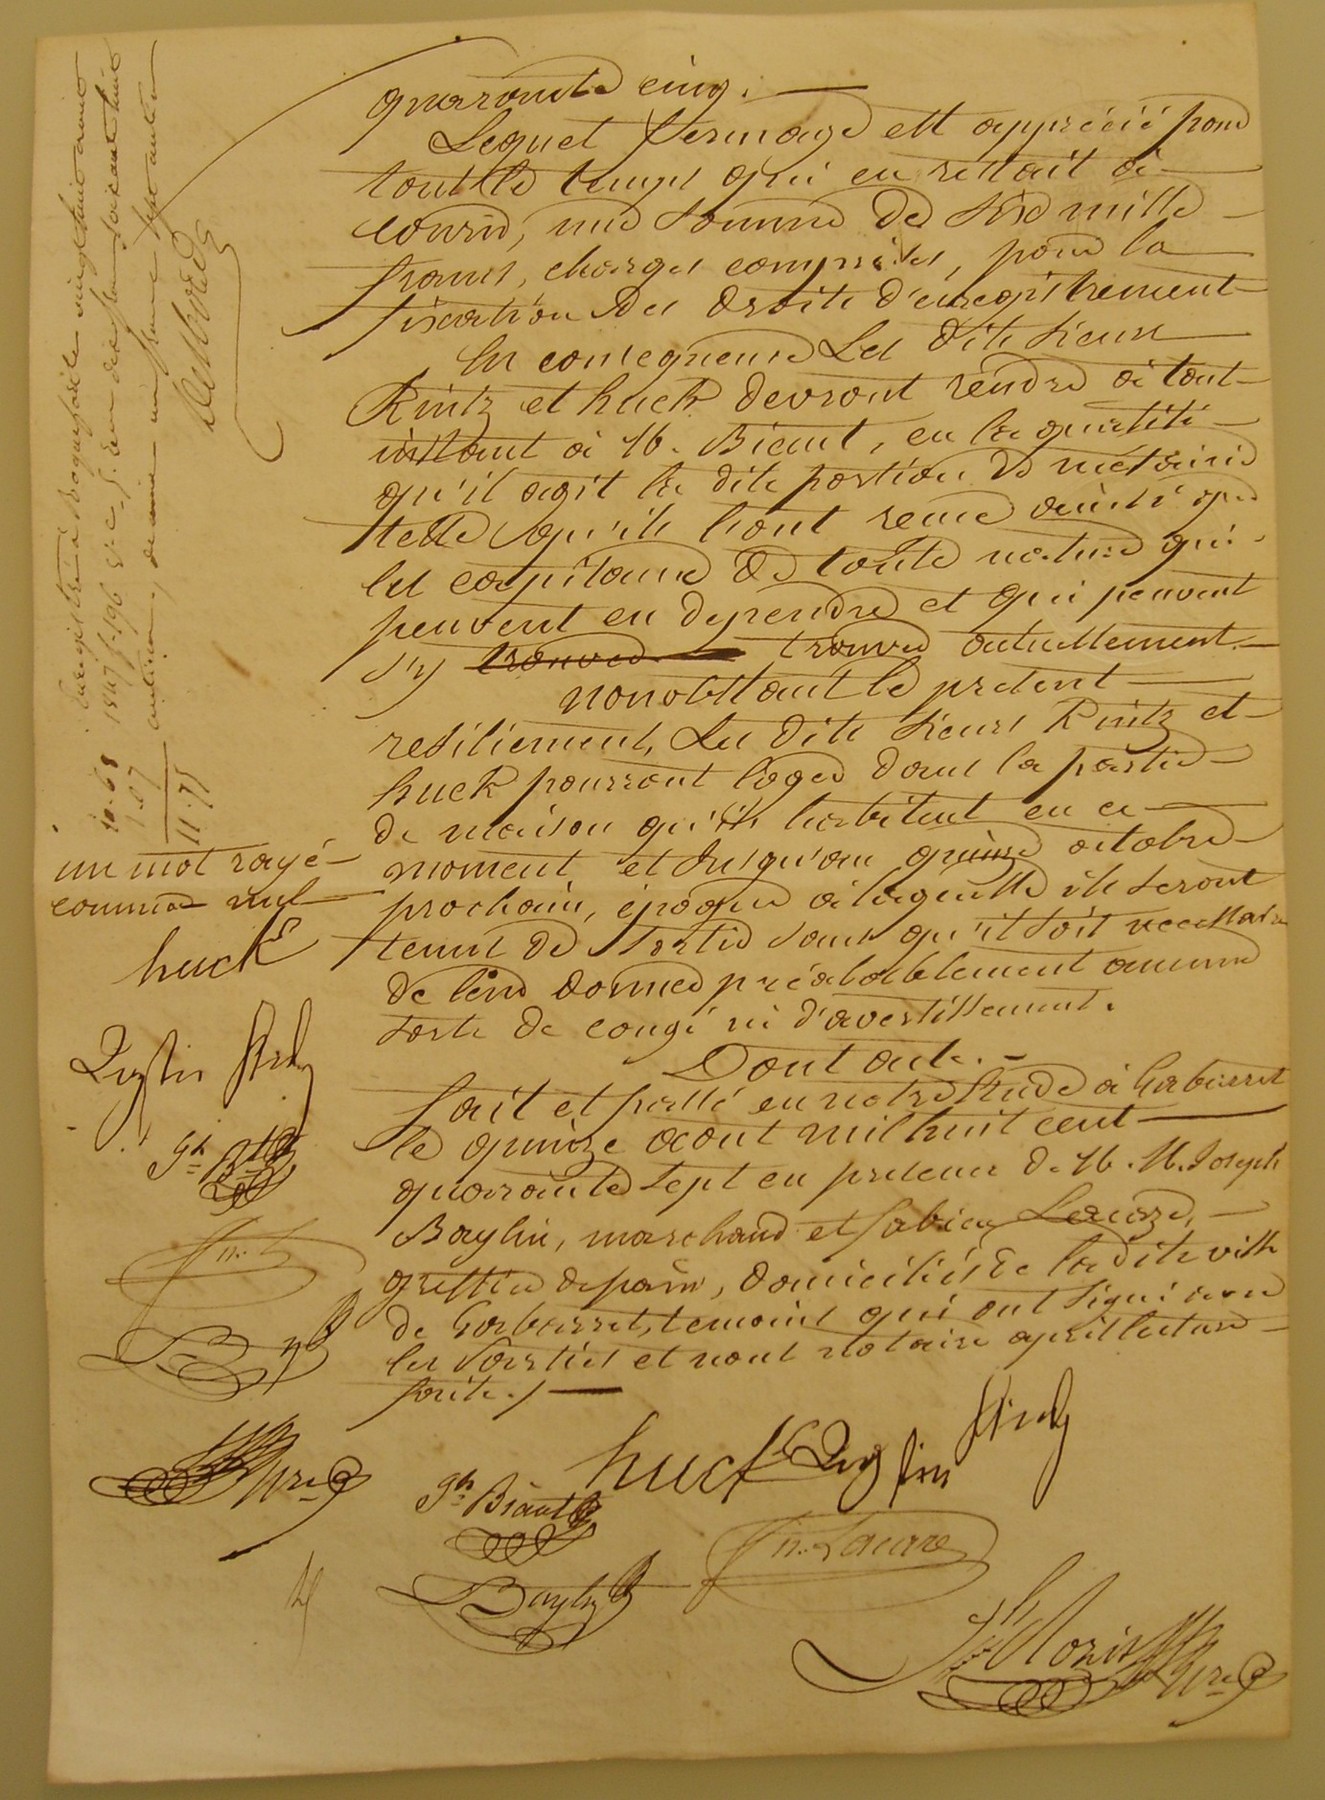 quarante cinq.
Lequel fermage est apprécié pour
tout le temps qui en restait à
courir, une somme de six mille
francs, charges comprises, pour la
fixation des droits d'enregistrement
En consequence Les dits sieurs
Rintz et huck devront rendre à tout
instant à M. Biaut, en la qualité
qu'il agit la dite portion de métairie
telle qu'ils l'ont reçue ainsi que
les capitaux de toute nature qui
peuvent en dependre et qui peuvent
s'y trouver trouver actuellement.
nonobstant le present
resiliement, Les dits sieurs Rintz et
huck pourront loger dans la partie
de maison qu'ils habitent en ce
moment et jusqu'au quinze octobre
prochain, époque à laquelle ils seront
tenus de sortir sans qu'il soit necessaire
de leur donner préalablement aucune
sorte de congé ni d'avertissement.
Dont acte.
fait et passé en notre Etude à Gabarret
le quinze aout mil huit cent
quarante sept en presence de M. M. Joseph
Baylin, marchand et fabien Lacaze,
greffier de paix, domiciliés de la dite ville
de Gabarret, temoins qui ont signé avec
les Parties et nous notaire après lecture
faite./
huck
Jh Biaut
fn. Lacaze
Baylin
Enregistré à
1847 fo 196
10.68
1.07
11.75
un mot rayé
comme nul
huck